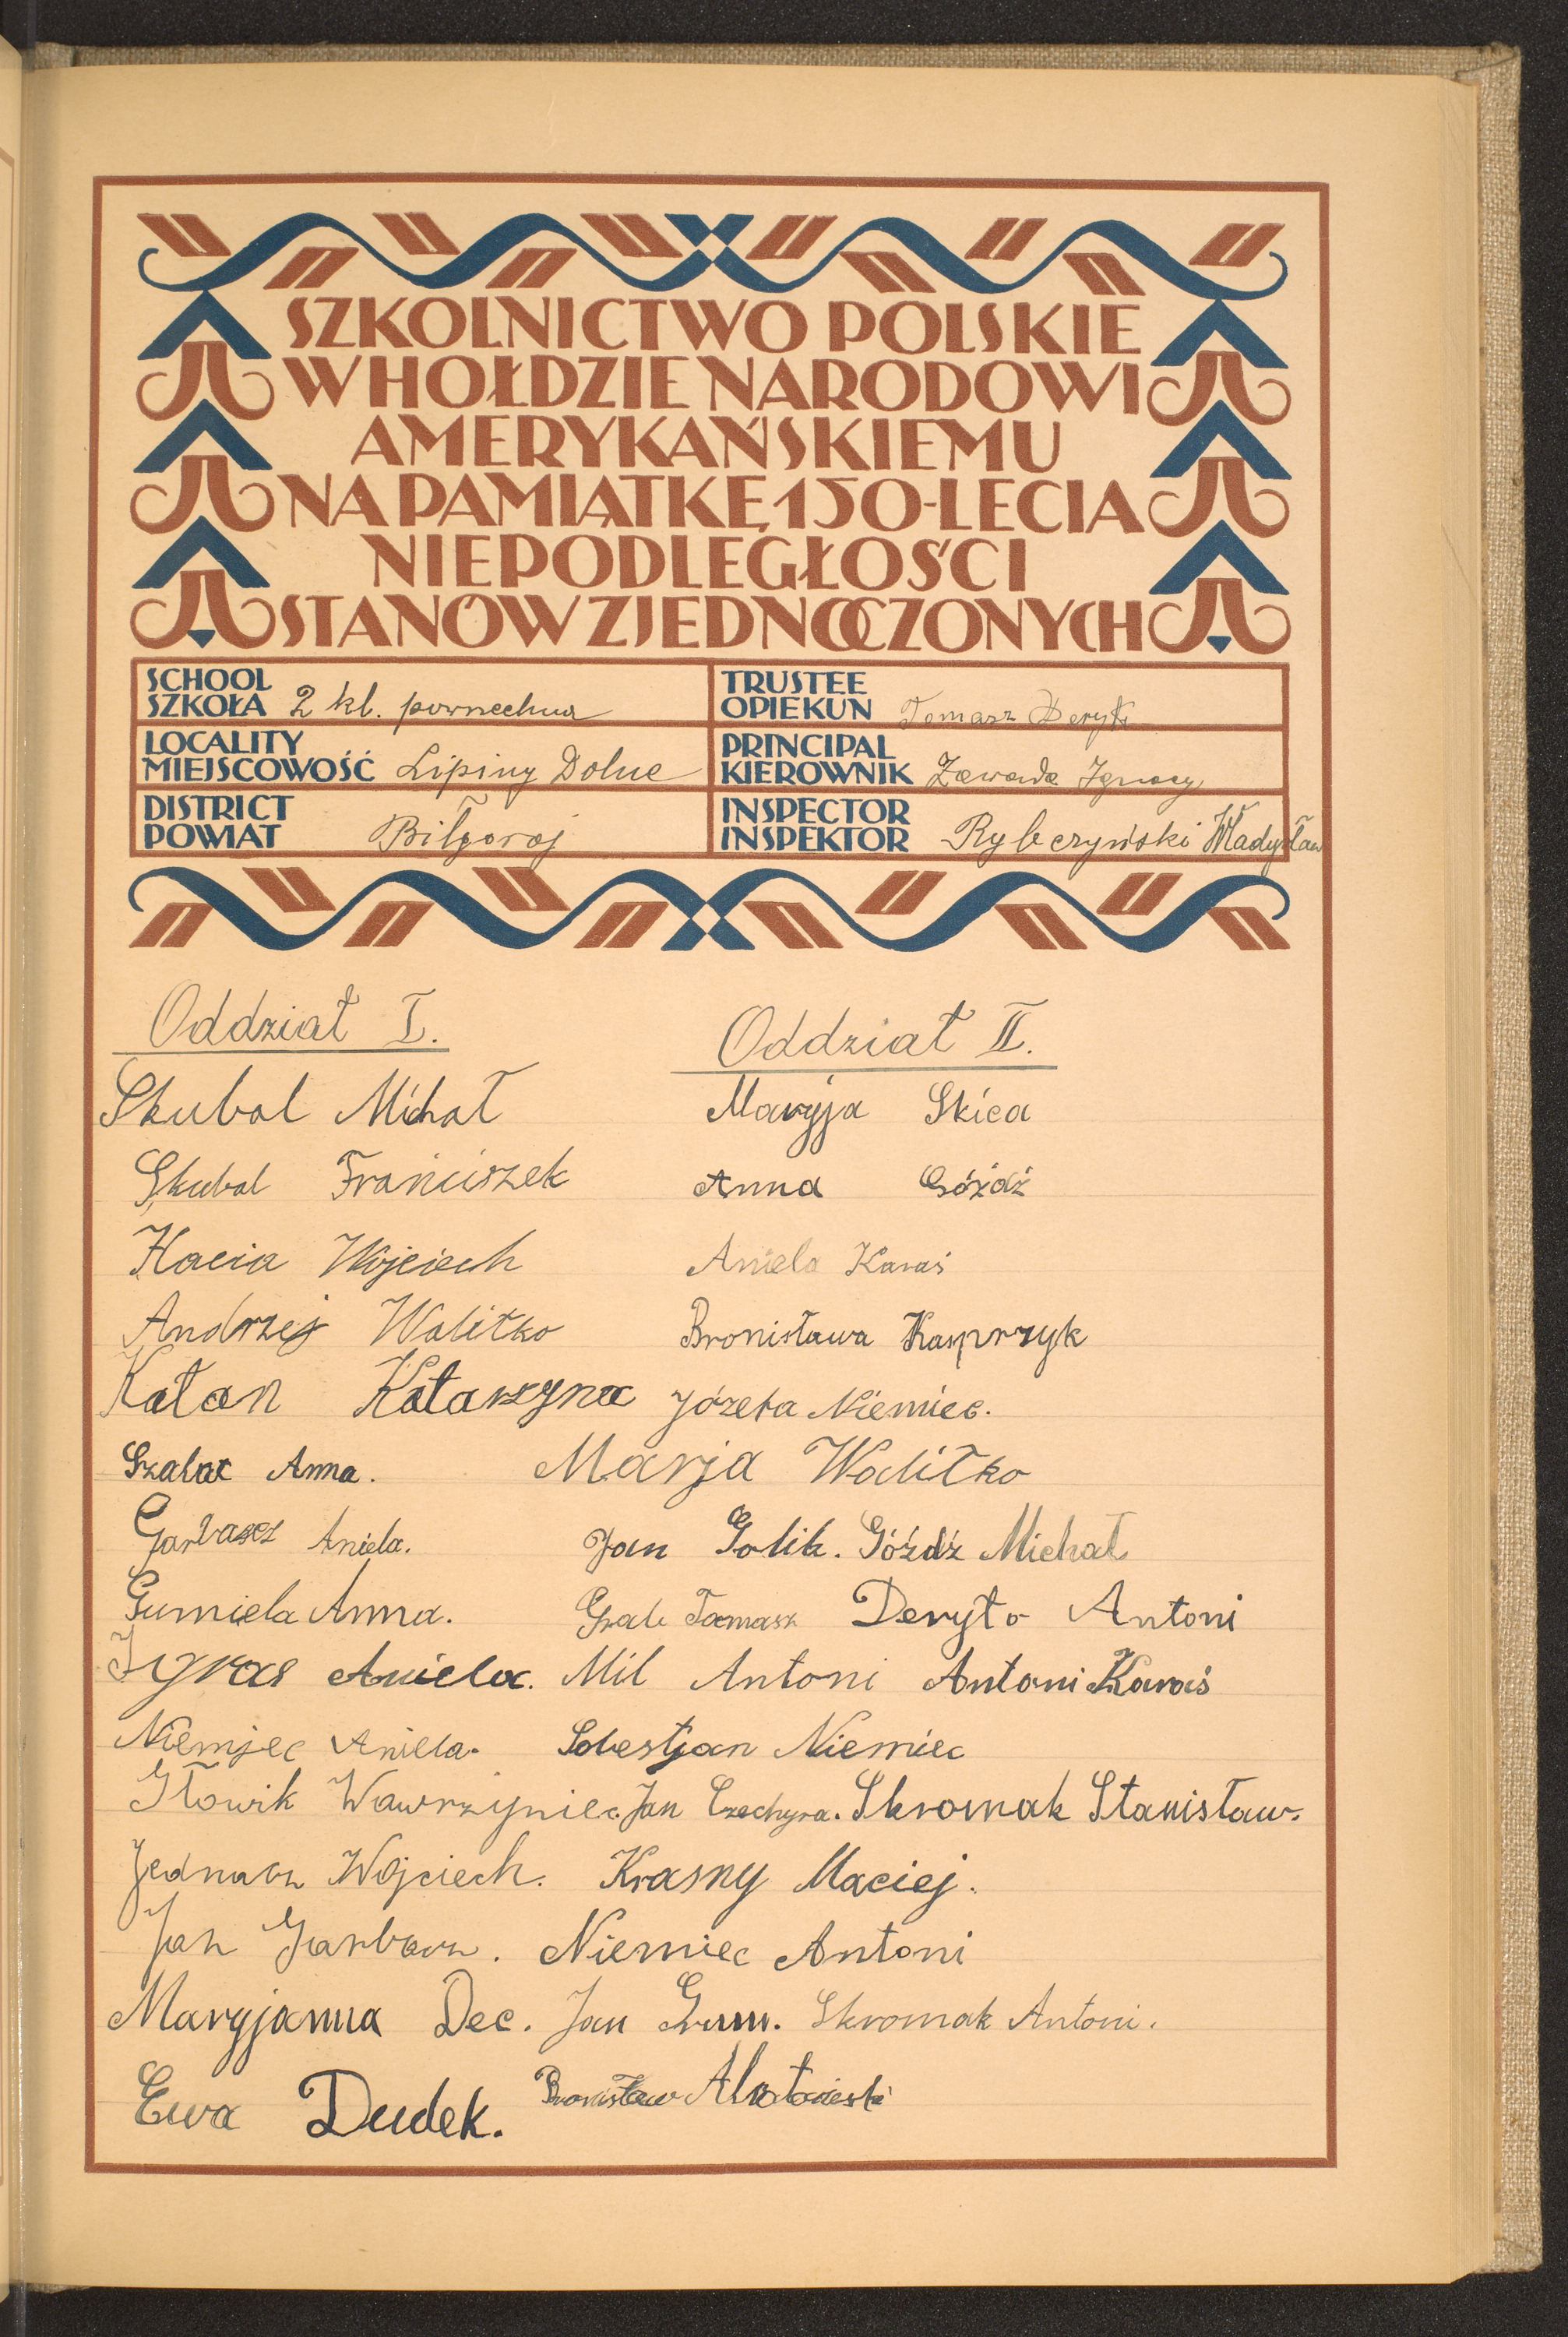 SZKOLNICTWO POLSKIE
W HOŁDZIE NARODOWI
AMERYKAŃSKIEMU
NA PAMIĄTKĘ 150-LECIA
NIEPODLEGŁOŚCI
STANÓW ZJEDNOCZONYCH
SCHOOL
SZKOŁA 2 kl. powszechna
TRUSTEE
OPIEKUN Tomasz Deryło
LOCALITY
MIEJSCOWOŚĆ Lipiny Dolne
PRINCIPAL
KIEROWNIK Zawada Ignacy
DISTRICT
POWIAT Biłgoraj
INSPECTOR
INSPEKTOR Rybczyński Władysław
Oddział I.
Skubal Michał
Skubal Franciszek
Hacia Wojciech
Andrzej Waliłko
Katan Katarzyna
Szalac Anna.
Garbacz Aniela.
Gumiela Anna.
Igras Aniela.
Niemjec Aniela.
Głowik Wawrzyniec.
Jednacz Wojciech.
Jan Garbacz.
Maryjanna Dec.
Ewa Dudek.
Oddział II.
Maryja Skica
Anna Góźdź
Aniela Karaś
Bronisława Kasprzyk
Józefa Niemiec.
Marja Waliłko
Jan Golik. Góźdź Michał
Tomasz Deryło Antoni
Mil Antoni Antoni Karaś
Sebestjan Niemiec
Jan Czechyra. Skromak Stanisław.
Krasny Maciej.
Niemiec Antoni
Jan Grum. Skromak Antoni.
Bronisław